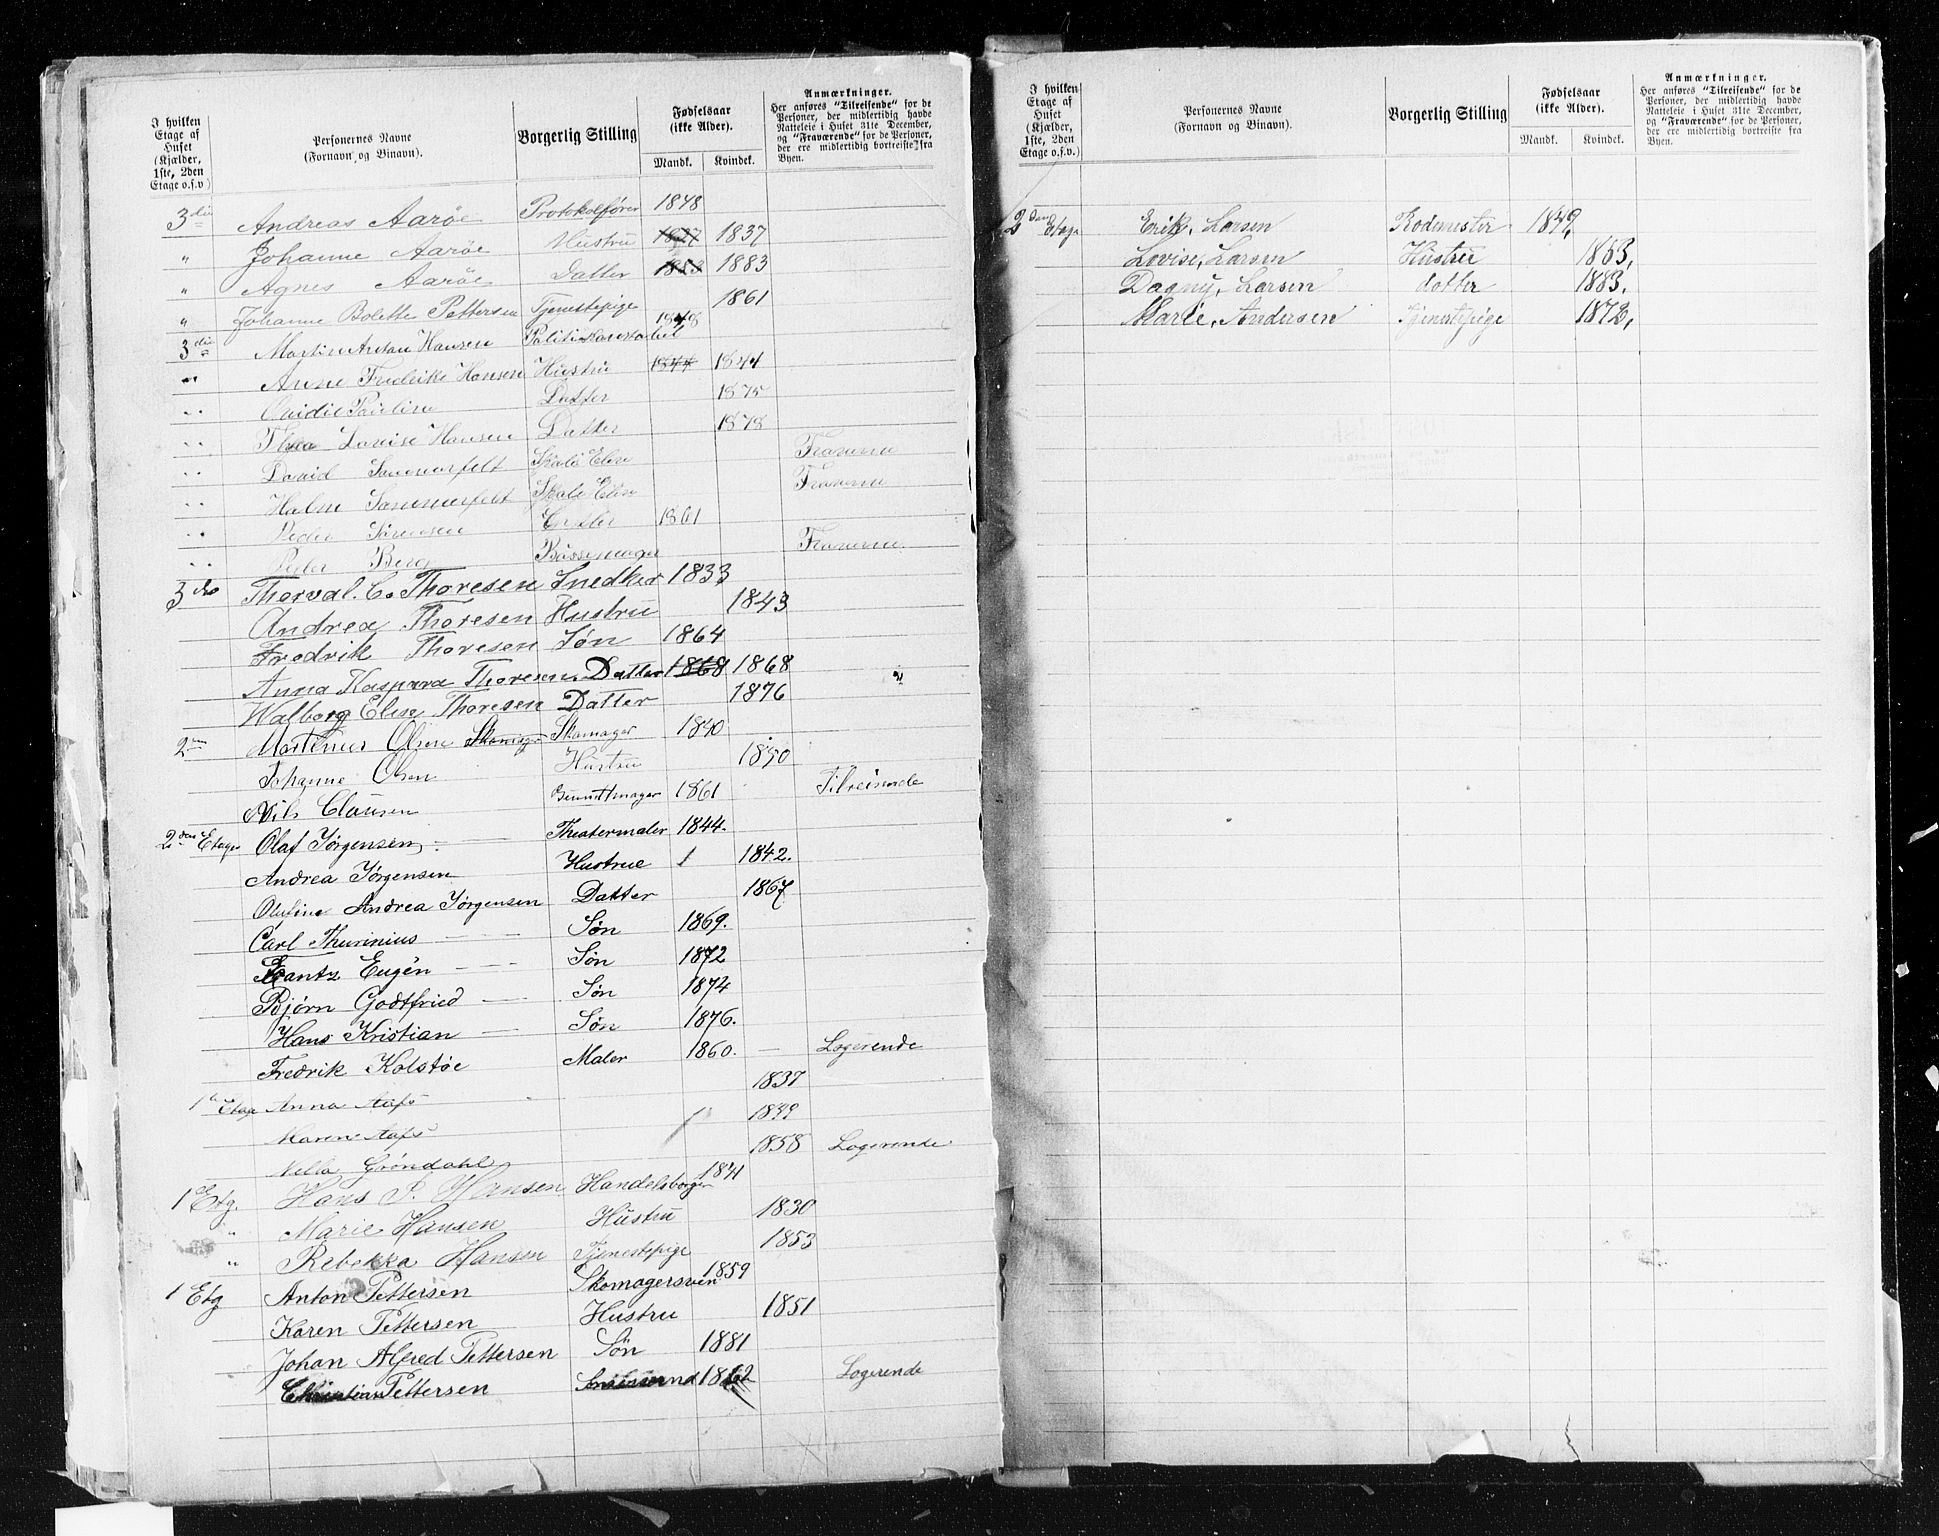 I hvilken Etage af Huset (Kjælder, 1ste, 2den Etage o.s.v.) | Personernes Navne (Fornavn og Binavn). | Borgerlig Stilling | Fødselsaar (ikke Alder). Mandk. Kvindek. | Anmærkninger. Her anføres "Tilreisende" for de Personer, der midlertidig havde Natteleie i Huset 31te December, og "Fraværende" for de Personer, der ere midlertidig bortreiste fra Byen.
3die Andreas Aarøe Protokolfører 1848
" Johanne Aarøe Hustru 1837
" Agnes Aarøe Datter 1883
" Johanne Bolette Pettersen Tjenestepige 1861
3die Martin Anton Hansen Politikonstabel 1848
" Anne Fredrike Hansen Hustru 1844
" Pauline Datter 1875
" Thea Louise Hansen Datter 1878
" David Sommerfelt Skole Elev
" Sommerfelt Skole Elev
" Peder Sørensen 1861
" Peder Berg Bøssemager
3die Thorval. C. Thoresen Snedker 1833
Andrea Thoresen Hustru 1843
Fredrik Thoresen Søn 1864
Anna Kaspara Thoresen Datter 1868 1868
Walborg Elise Thoresen Datter 1876
2 Martinus Olsen Skomager 1840
Johanne Olsen Hustru 1850
Nils Clausen 1861 Tilreisende
2den Etage Olaf Jørgensen Theatermaler 1844.
Andrea Jørgensen Hustrue 1842.
Olufine Andrea Jørgensen Datter 1867
Carl Thurinius — Søn 1869.
Frantz Eugén — Søn 1872
Bjørn Godtfried — Søn 1874
Hans Kristian — Søn 1876.
Fredrik Kolstøe Maler 1860. — Logerende
1 Etage Anna 1837
Maren
Grøndahl 1858 Logerende
1 Etg. Hans P. Hansen Handelsborger 1841
" Marie Hansen Hustru 1830
" Rebekka Hansen Tjenestepige 1853
1 Etg Anton Pettersen Skomagersven 1859
Karen Pettersen Hustru 1851
Johan Alfred Pettersen Søn 1881
Christian Pettersen 1862 Logerende
I hvilken Etage af Huset (Kjælder, 1ste, 2den Etage o.s.v.) | Personernes Navne (Fornavn og Binavn). | Borgerlig Stilling | Fødselsaar (ikke Alder). Mandk. Kvindek. | Anmærkninger. Her anføres "Tilreisende" for de Personer, der midlertidig havde Natteleie i Huset 31te December, og "Fraværende" for de Personer, der ere midlertidig bortreiste fra Byen.
2den Etage Erik, Larsen Rodemester 1849,
Lovise, Larsen Hustru 1853,
Dagny, Larsen datter 1883.
Marie, Andersen Tjenestepige 1872,